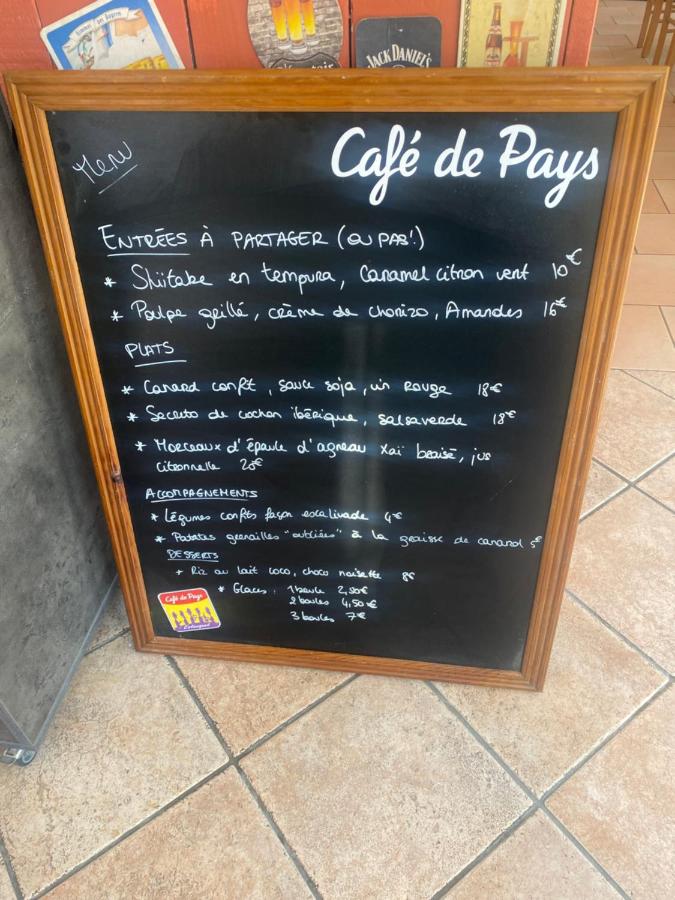 JACK DANIEL'S
Menu
Café de Pays
ENTRÉES À PARTAGER (OU PAS!)
* Shiitake en tempura, Caramel citron vert 10€
* Poulpe grillé, crème de chorizo, Amandes 16€
PLATS
* Canard confit, sauce soja, vin rouge 18€
* Secreto de cochon ibérique, salsa verde 18€
* Morceaux d'épaule d'agneau xaï braisé, jus
citronnelle 20€
ACCOMPAGNEMENTS
* Légumes confits façon escalivade 4€
* Patates grenailles "oubliées" à la graisse de canard 5€
DESSERTS
* Riz au lait coco, choco noisette 8€
* Glaces, 1 boule 2,50€
2 boules 4,50€
3 boules 7€
Café de Pays